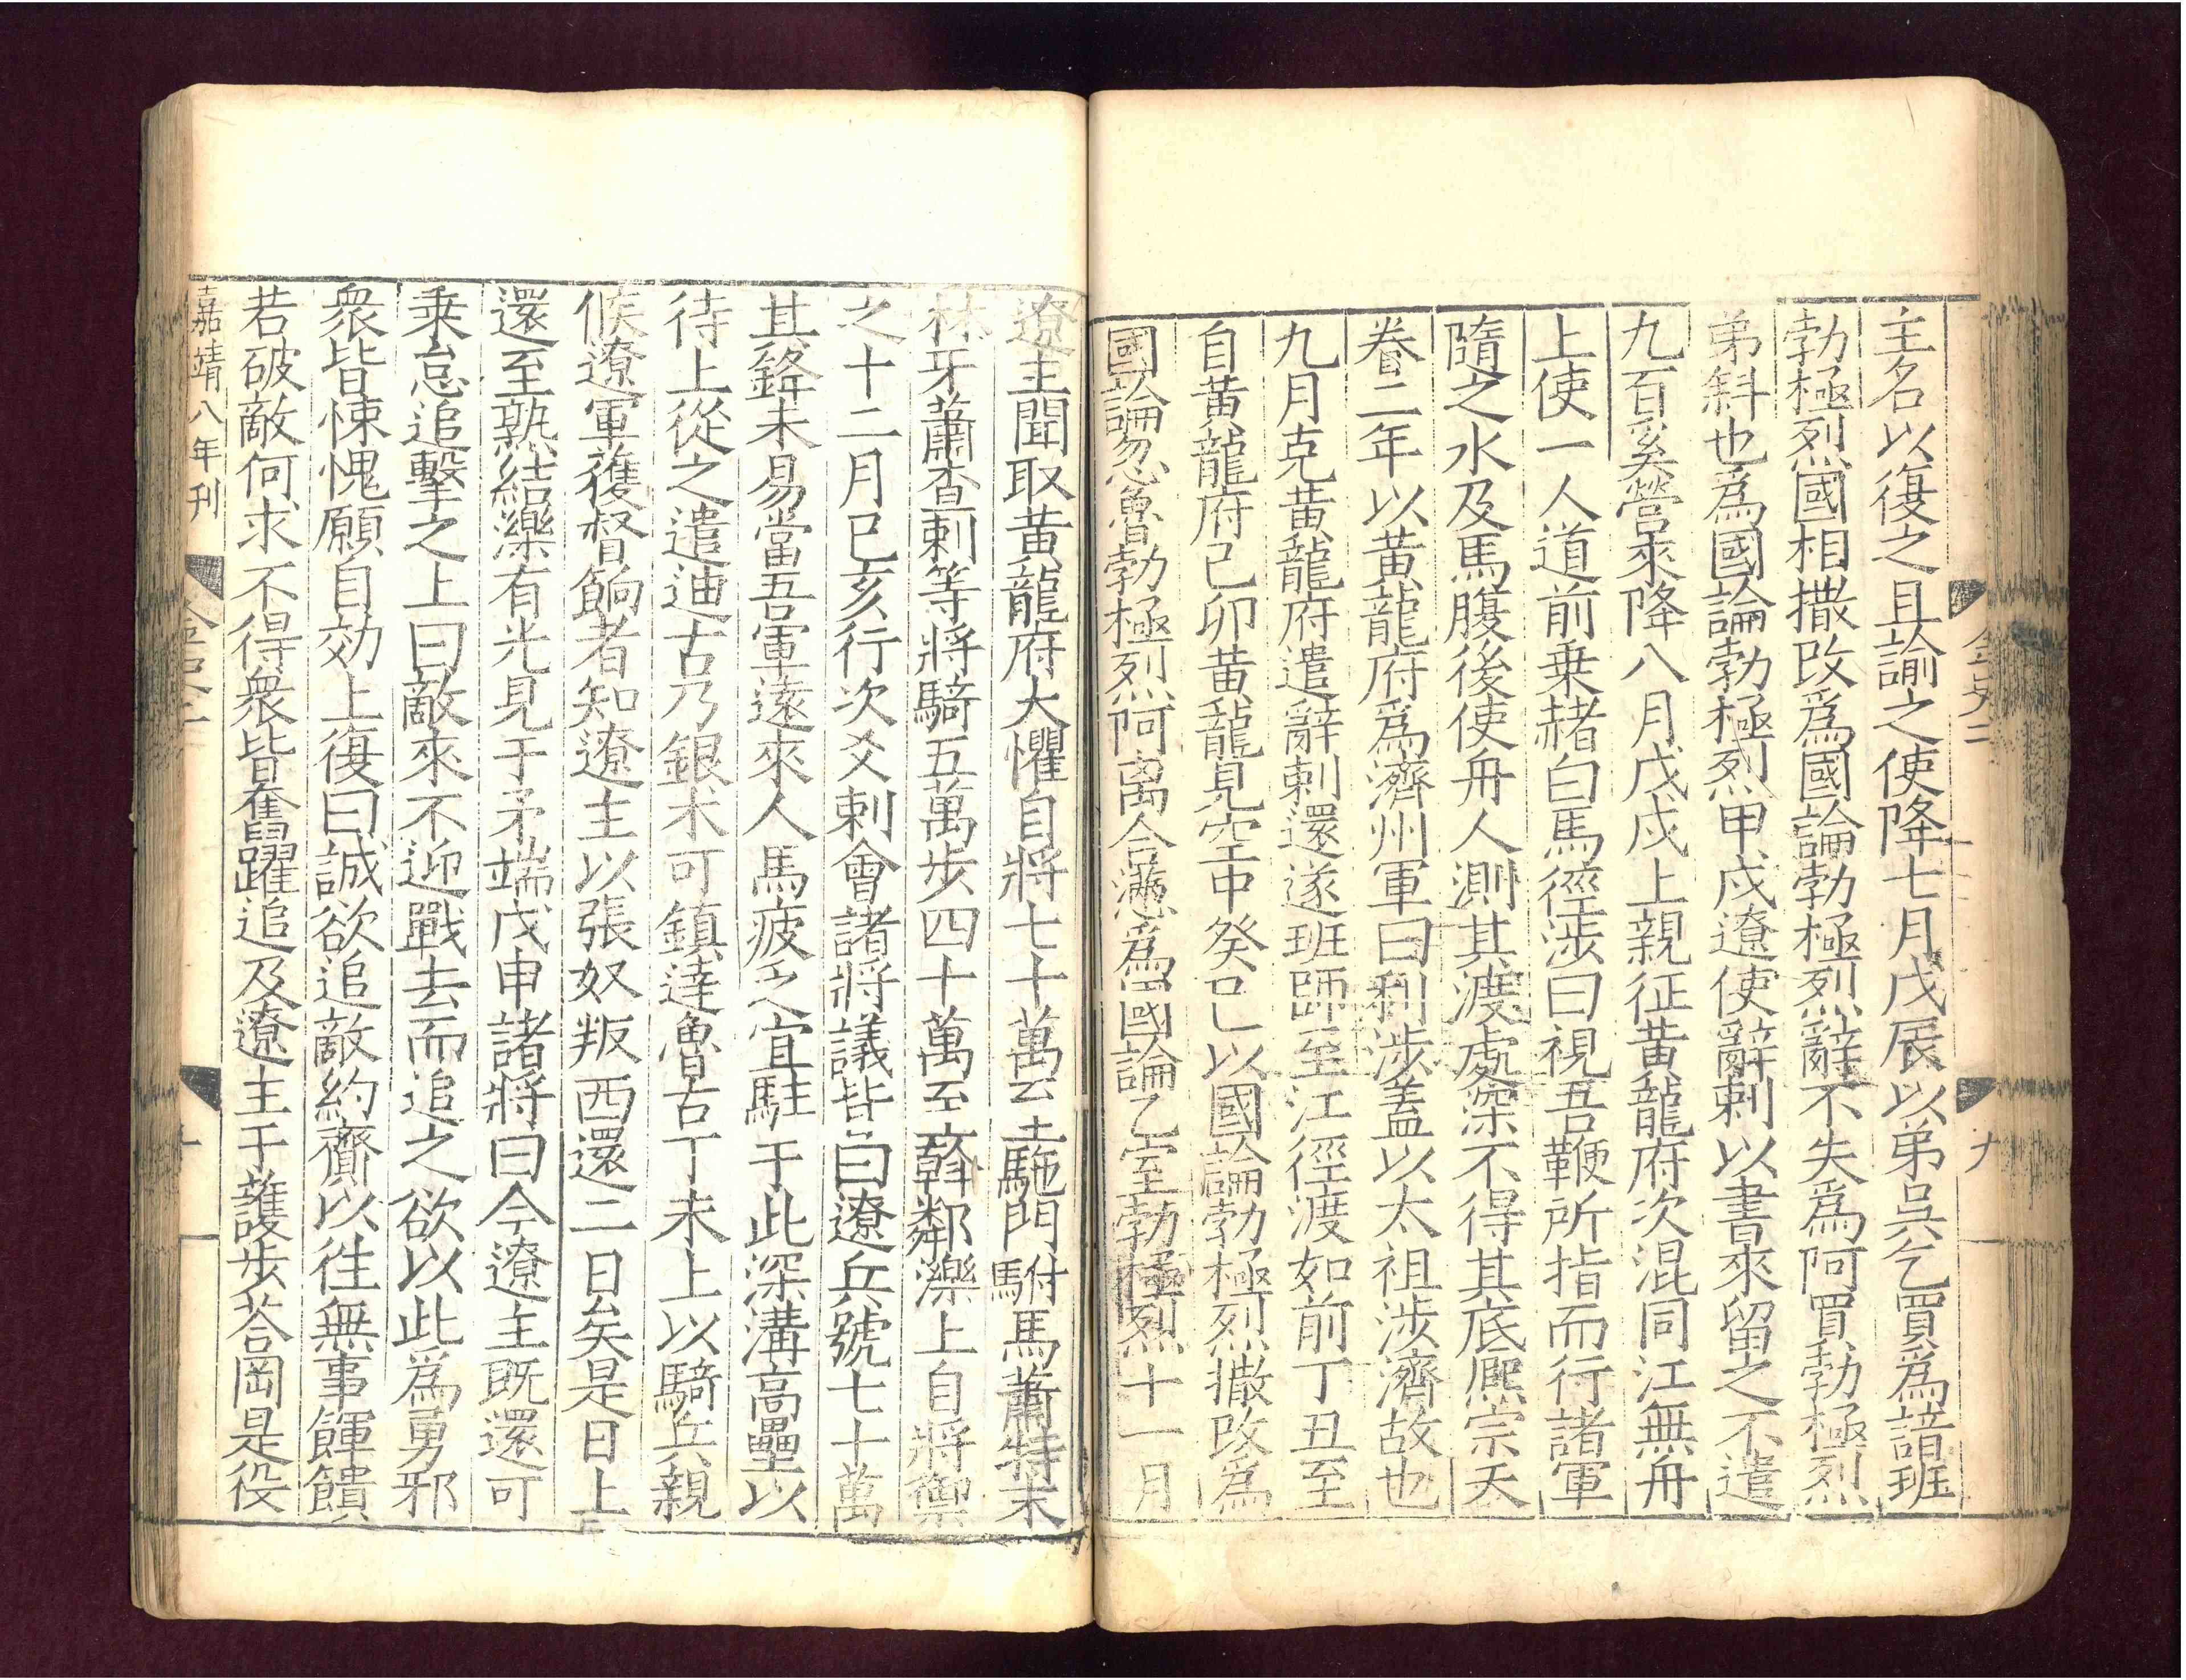 主名以復之且諭之使降七月戊辰以弟吳乞買爲諳班
勃極烈國相撒改爲國論勃極烈辭不失爲阿買勃極烈
弟斜也爲國論勃極烈甲戌遼使辭剌以書來留之不遣
九百奚營來降八月戊戌上親征黃龍府次混同江無舟
上使一人道前乗赭白馬徑涉曰視吾鞭所指而行諸軍
隨之水及馬腹後使舟人測其渡處深不得其底熈宗天
眷二年以黃龍府爲濟州軍曰利涉盖以太祖涉濟故也
九月克黃龍府遣辭剌還遂班師至江徑渡如前丁丑至
自黃龍府己卯黃龍見空中癸巳以國論勃極烈撒改爲
國論忽魯勃極烈阿离合懣爲國論乙室勃極烈十一月
遼主聞取黃龍府大懼自將七十萬至駞門駙馬蕭特末
林牙蕭查剌等將騎五萬步四十萬至斡鄰濼上自將禦
之十二月己亥行次爻剌會諸將議皆曰遼兵號七十萬
其鋒未易當吾軍遠來人馬疲乏宜駐于此深溝高壘以
待上從之遣迪古乃銀术可鎮達魯古丁未上以騎兵親
候遼軍獲督餉者知遼主以張奴叛西還二日矣是日上
還至熟結濼有光見于矛端戊申諸將曰今遼主既還可
乗怠追擊之上曰敵來不迎戰去而追之欲以此爲勇邪
衆皆悚愧願自効上復曰誠欲追敵約齎以往無事餫饋
若破敵何求不得衆皆奮躍追及遼主于護步荅岡是役
嘉靖八年刊
金史二
十
金史二
九